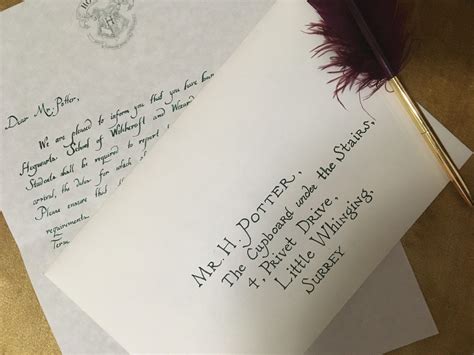 Dear Mr. Potter,
We are pleased to inform you that you have been
Hogwarts School of Witchcraft and Wizard
Students shall be required to report
arrival, the dates for which
Please ensure that
requirements
Term
MR. H. POTTER,
The Cupboard under the Stairs,
4, Privet Drive,
Little Whinging,
SURREY